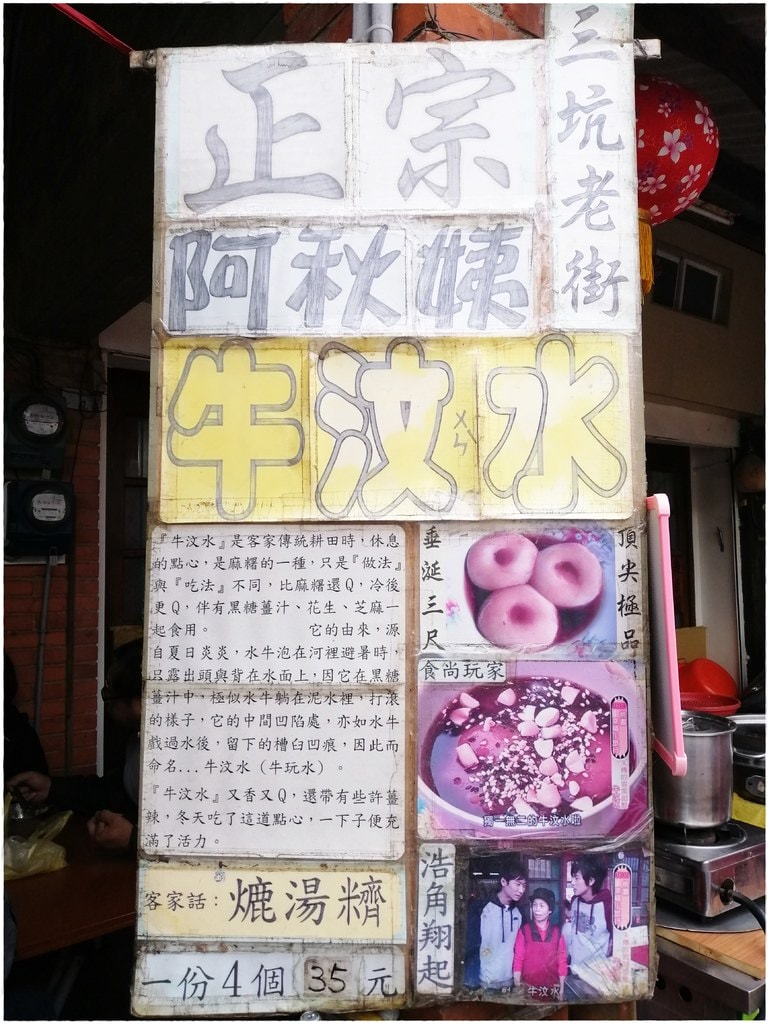 三坑老街
正宗
阿秋姨
牛汶水
ㄨㄣˊ
『牛汶水』是客家傳統耕田時，休息
的點心，是麻糬的一種，只是『做法』
與『吃法』不同，比麻糬還Q，冷後
更Q，伴有黑糖薑汁、花生、芝麻一
起食用。 它的由來，源
自夏日炎炎，水牛泡在河裡避暑時，
只露出頭與背在水面上，因它在黑糖
薑汁中，極似水牛躺在泥水裡，打滾
的樣子，它的中間凹陷處，亦如水牛
戲過水後，留下的槽臼凹痕，因此而
命名...牛汶水（牛玩水）。
『牛汶水』又香又Q，還帶有些許薑
辣，冬天吃了這道點心，一下子便充
滿了活力。
垂涎三尺
頂尖極品
食尚玩家
獨一無二的牛汶水啦
浩角翔起
牛汶水
客家話：熝湯糍
一份4個 35 元